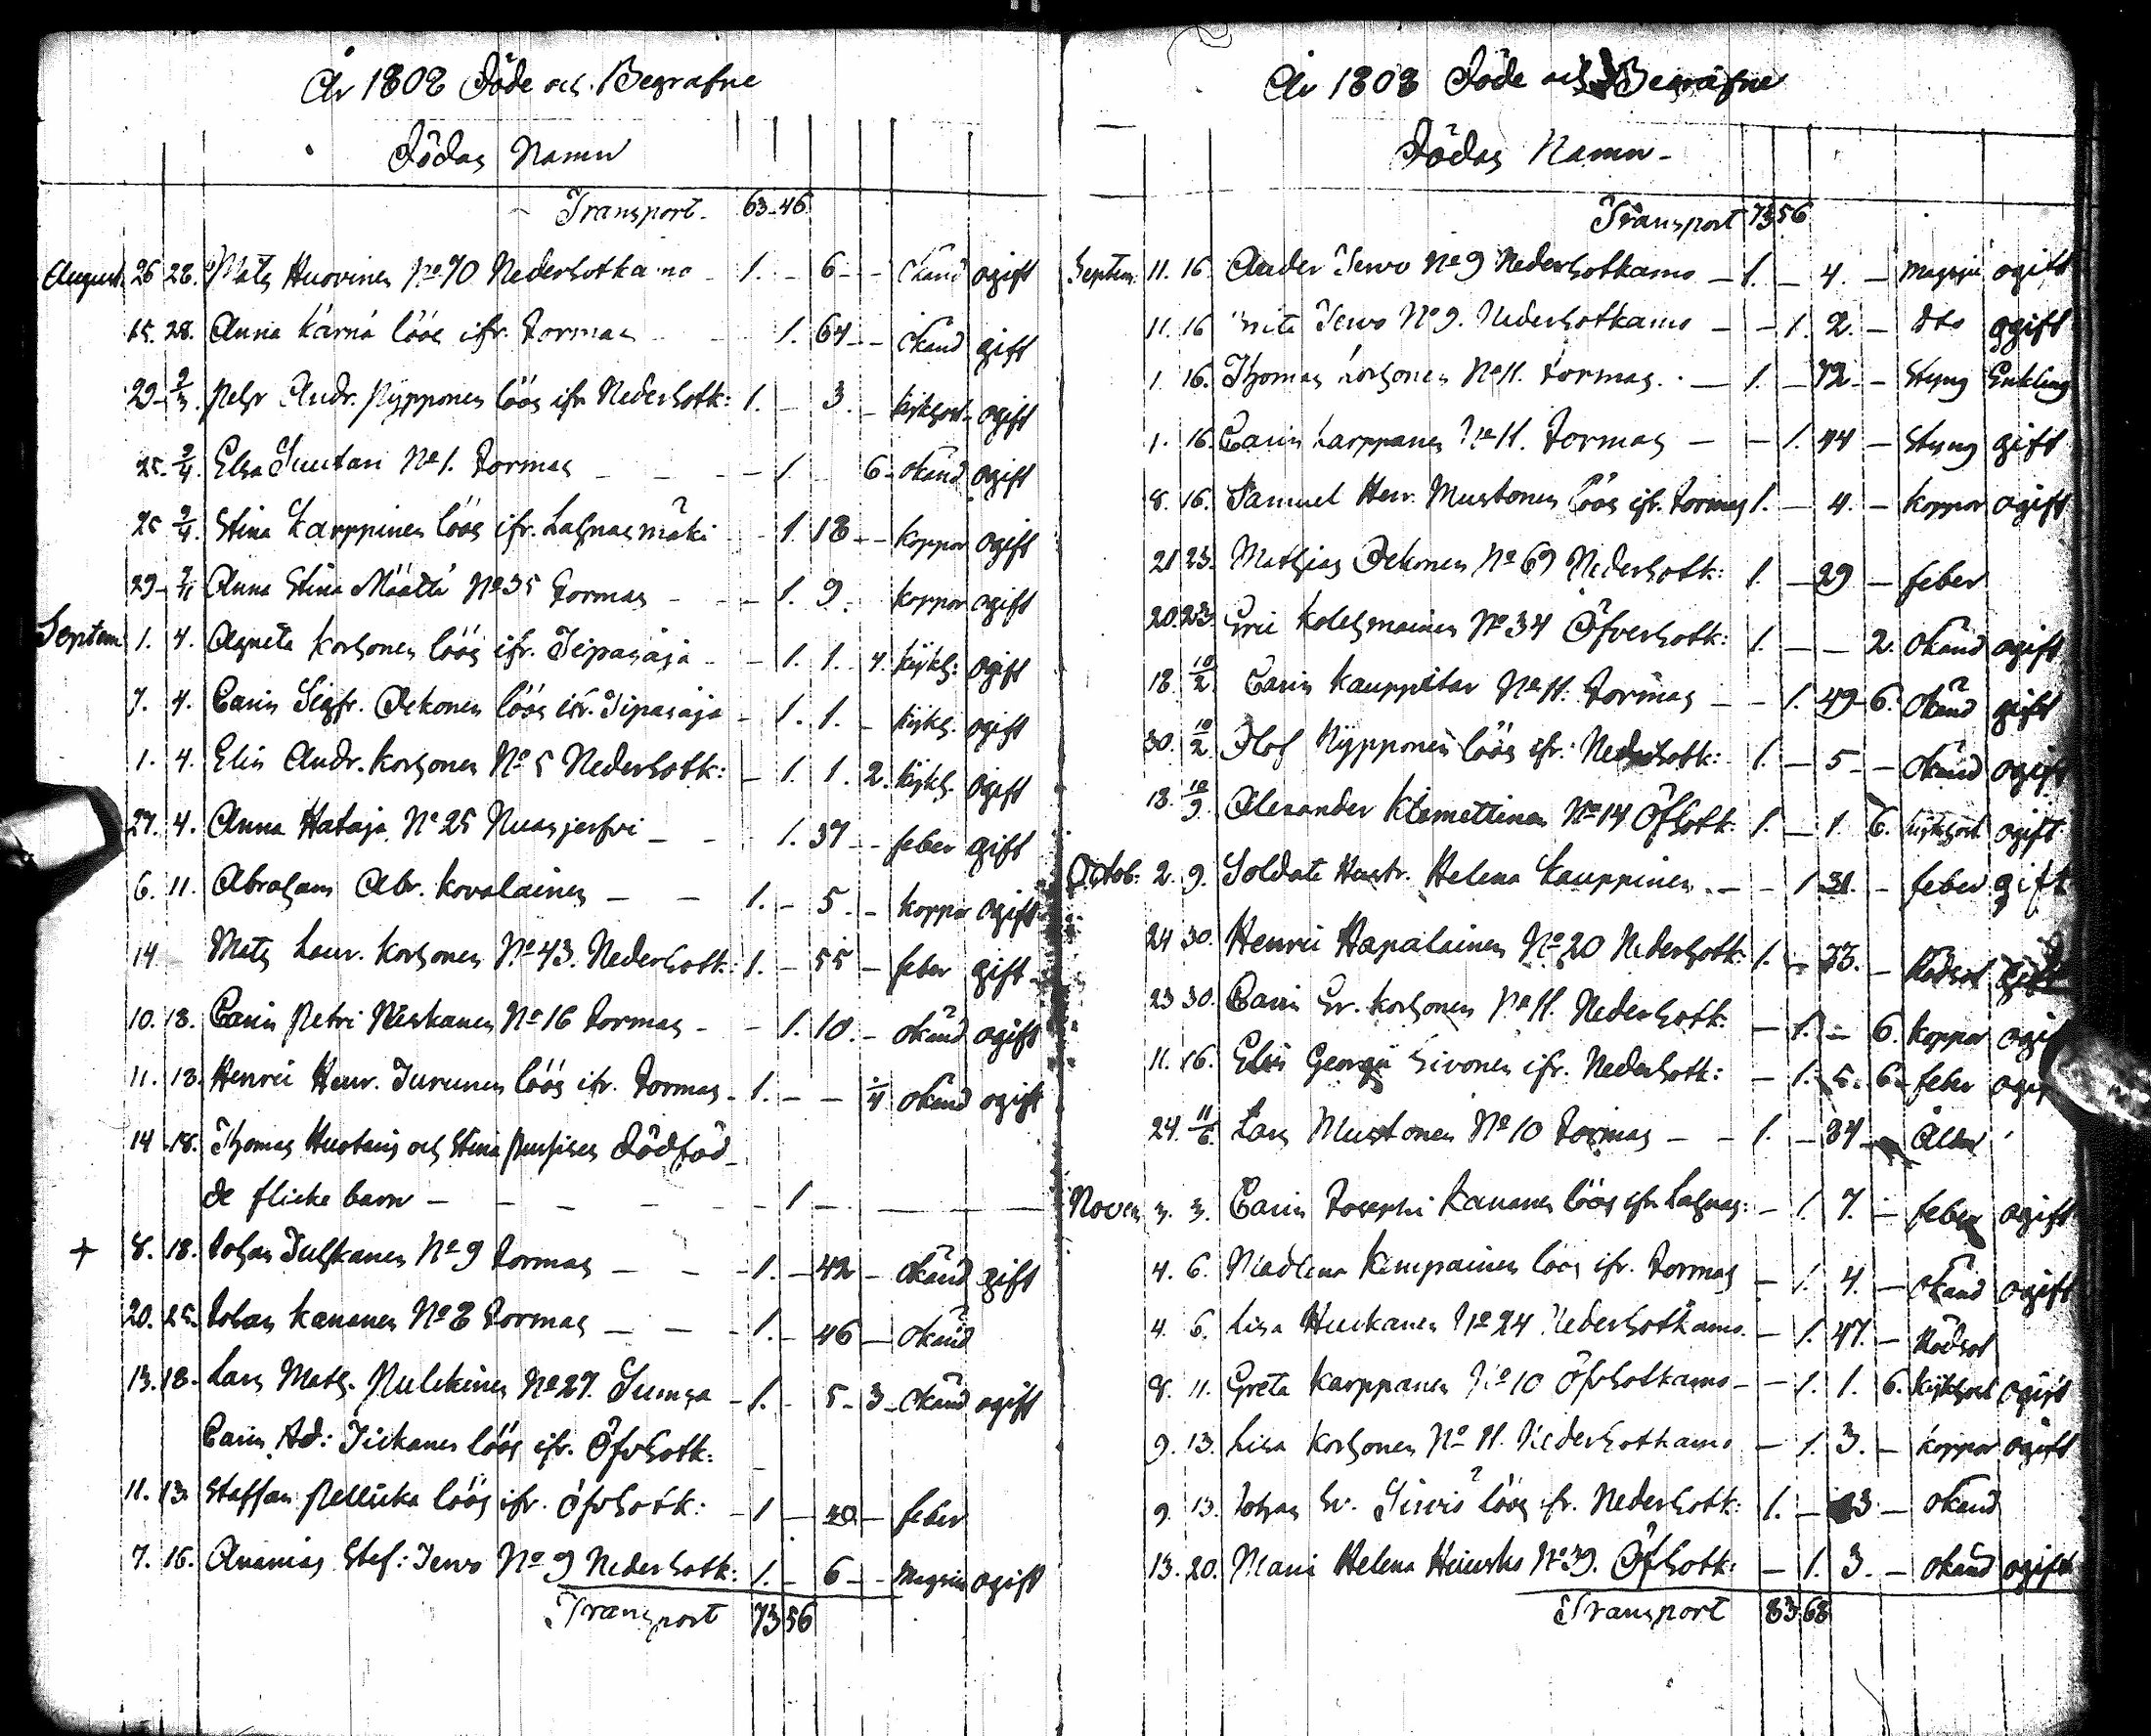 År 1808 Döde och Begrafne
Dödas Namn
Transport. 63 - 46
August. 26 28. Mats Huovinen No 70 Nederhotkamo - 1. - 6 - - Okänd ogift
15. 28. Anna Kärnä löös ifr. Sormas - 1. 64 - - Okänd gift
29 - 2/9. Petr Andr. Nypponen löös ifr. Nederhotk: 1. - 3. - Kikhost. ogift
25. 9/4. Elsa Juntari No 1. Sormas - - - 1. 6 - okänd ogift
25 9/4. Stina Karppinen löös ifr. Lahnasmäki - 1. 18 - - Koppor ogift
29 - Anna Stina Määttä No 35 Sormas - - - 1. 9. Koppor ogift
Septem. 1. 4. Agneta Korhonen löös ifr. Tipasaja - - 1. 1. 4. Kijkh: ogift
7. 4. Carin Sigfr. Oekonen löös ifr. Tipasaja - 1. 1. - Kijkh. ogift
1. 4. Elin Andr. Korhonen No 5 Nederhotk: - 1. 1. 2. Kijkh. ogift
27. 4. Anna Hataja No 25 Nuasjerfvi - - 1. 37 - - feber gift
6. 11. Abraham Abr. Kovalainen - - 1. - 5. - Koppor ogift
14 Mats Laur. Korhonen No 43. Nederhotk: 1. - 55 - feber gift
10. 18. Carin Petri Niskanen No 16 Sormas - - 1. 10. - okänd ogift
11. 18. Henric Henr. Jurunen löös ifr. Sormas - 1. - - 1/4 okänd ogift
14 - 18. Thomas Huotaris och Stina dödföd-
de flickebarn - - - - - - 1 -
+ 8. 18. Johan Julkanen No 9 Sormas - - - 1. - 42 - okänd gift
20. 25. Johan Kananen No 8 Sormas - - - 1. - 46 - okänd
13. 18. Lars Math. Pulckinen No 27. Sumsa - 1. - 5 - 3 - Okänd ogift
Carin Ad: Tickanen löös ifr. Öfvhotk: -
11. 13. Staffan Pellicka löös ifr. Öfvhotk: - 1 - 40 - feber
7. 16. Ananias Stef: Tervo No 9 Nederhotk: 1. - 6 - - Magsju ogift
Transport 73 56
År 1808 Döde och Begrafne
Dödas Namn -
Transport 73 56
Septem. 11. 16. Ander Tervo No 9 Nederhotkamo - 1. - 4. - Magsju ogift
11. 16 Brita Tervo No 9. Nederhotkamo - - 1. 2. - dto ogift
1. 16. Thomas Korhonen No 11. Sormas. - 1. - 72 - - Styng Enkling
1. 16. Carin Karppanen No 11. Sormas - - 1. 44 - Styng gift
8. 16. Samuel Henr. Mustonen löös ifr. Sormas 1. - 4. - Koppor ogift
21 23. Mathias Oekonen No 69 Nederhotk: 1. - 29 - feber
20. 23. Eric Kolehmainen No 34 Öfverhotk: 1. - - 2. Okänd ogift
18. 10/2. Carin Kauppitar No 11. Sormas - - 1. 49 - 6. Okänd gift
30. 10/2. Olof Nypponen löös ifr. Nederhotk: - 1. - 5 - - Okänd ogift
18. 10/9. Alexander Klemettinen No 14 Öfhotk: 1. - 1. 6. Kijkhost ogift
Octob: 2. 9. Soldats Hustr. Helena Kauppinen - - - 1. 31. - feber gift
24 30. Henric Hapalainen No 20 Nederhotk: 1. - 33. - Rödsot gift
23 30. Carin Er. Korhonen No 11. Nederhotk. - 1. - 6. Koppor ogift
11. 16. Elis Georgii Sivonen ifr. Nederhotk: - 1. 5. 6 - feber ogift
24. 11/6. Lars Mustonen No 10 Sormas - - 1. - 84 - Ålder
Novem 3. 3. Carin Josephi Kananen löös ifr. Lahnas: - 1. 7. - feber ogift
4. 6. Madlena Kemppainen löös ifr. Sormas - 1. 4. - okänd ogift
4. 6. Lisa Huckanen No 24 Nederhotkamo. - 1. 47. - Rödsot
8. 11. Greta Karppanen No 10 Öfvhotkamo - - 1. 1. 6. Kijkhost ogift
9. 13. Lisa Korhonen No 11. Nederhotkamo - 1. 3. - Koppor ogift
9. 13. Johan Er. löös ifr. Nederhotk: 1. - 3 - okänd
13. 20. Maria Helena No 39. Öfhotk: - 1. 3. - okänd ogift
Transport 83 68